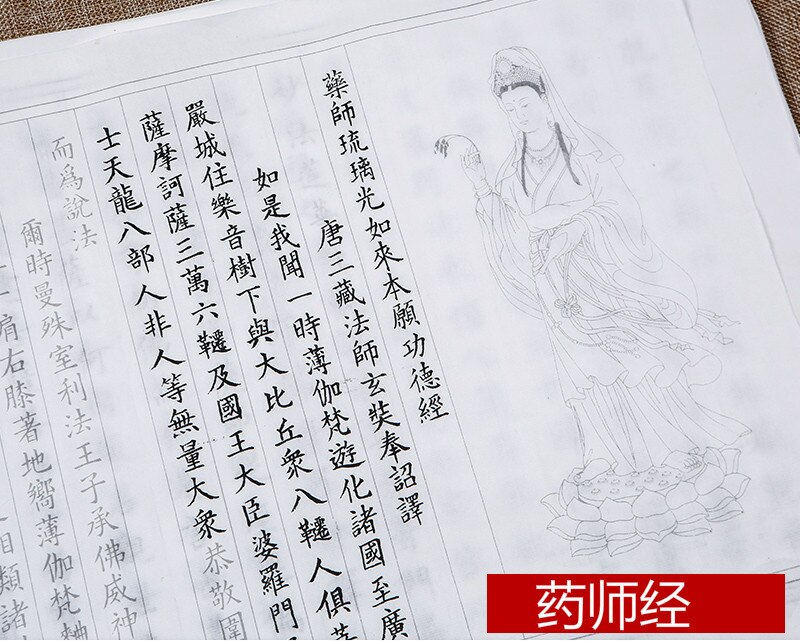 藥師琉璃光如來本願功德經
唐三藏法師玄奘奉詔譯
如是我聞一時薄伽梵遊化諸國至廣
嚴城住樂音樹下與大比丘衆八韆人俱菩
薩摩訶薩三萬六韆及國王大臣婆羅門
士天龍八部人非人等無量大衆恭敬圍
而爲說法
爾時曼殊室利法王子承佛威神
一肩右膝著地嚮薄伽梵
相類諸
药师经